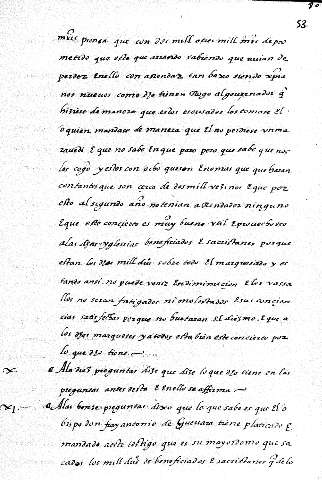 58
que con dos mill otros mill mrs de pro
metido que este que arrendo sabiendo que avian de
perder En ello con arrendar tan baxo siendo xpia
nos nuevos como dho tiene Rogo al governador q
hiziese de manera que estos escusados los tomase El
o quien mandase de manera que El no perdiese un ma
ravedi E que no sabe En que paro pero que sabe que no se
les cogio y estos con ocho que son E no mas que que heran
contantes que son cerca de dos mill vezinos E que por
esto al segundo año no tenian arrendador ninguno
E que este concierto es muy bueno util E provechoso
a las dhas yglesias beneficiados E sacristanes porque
estan los dhos mill dus sobre todo El marquesado y es
tando ansi no puede venir En diminucion E los vasa
llos no seran fatigados ni molestados E sus concien
cias satisfechas porque no hurtaran El diezmo E que a
los dhos marqueses y a todos esta bien este concierto por
lo que dho tiene
X. A la diez preguntas dixo que dize lo que dho tiene en las
preguntas antes desta E En ello se affirma
XI. A las honze preguntas dixo que lo que sabe es que El o
bispo don fray antonio de Guevara tiene platicado E
mandado a este testigo que es su mayordomo que sa
cados los mill dus de beneficiados E sacristanes q de lo